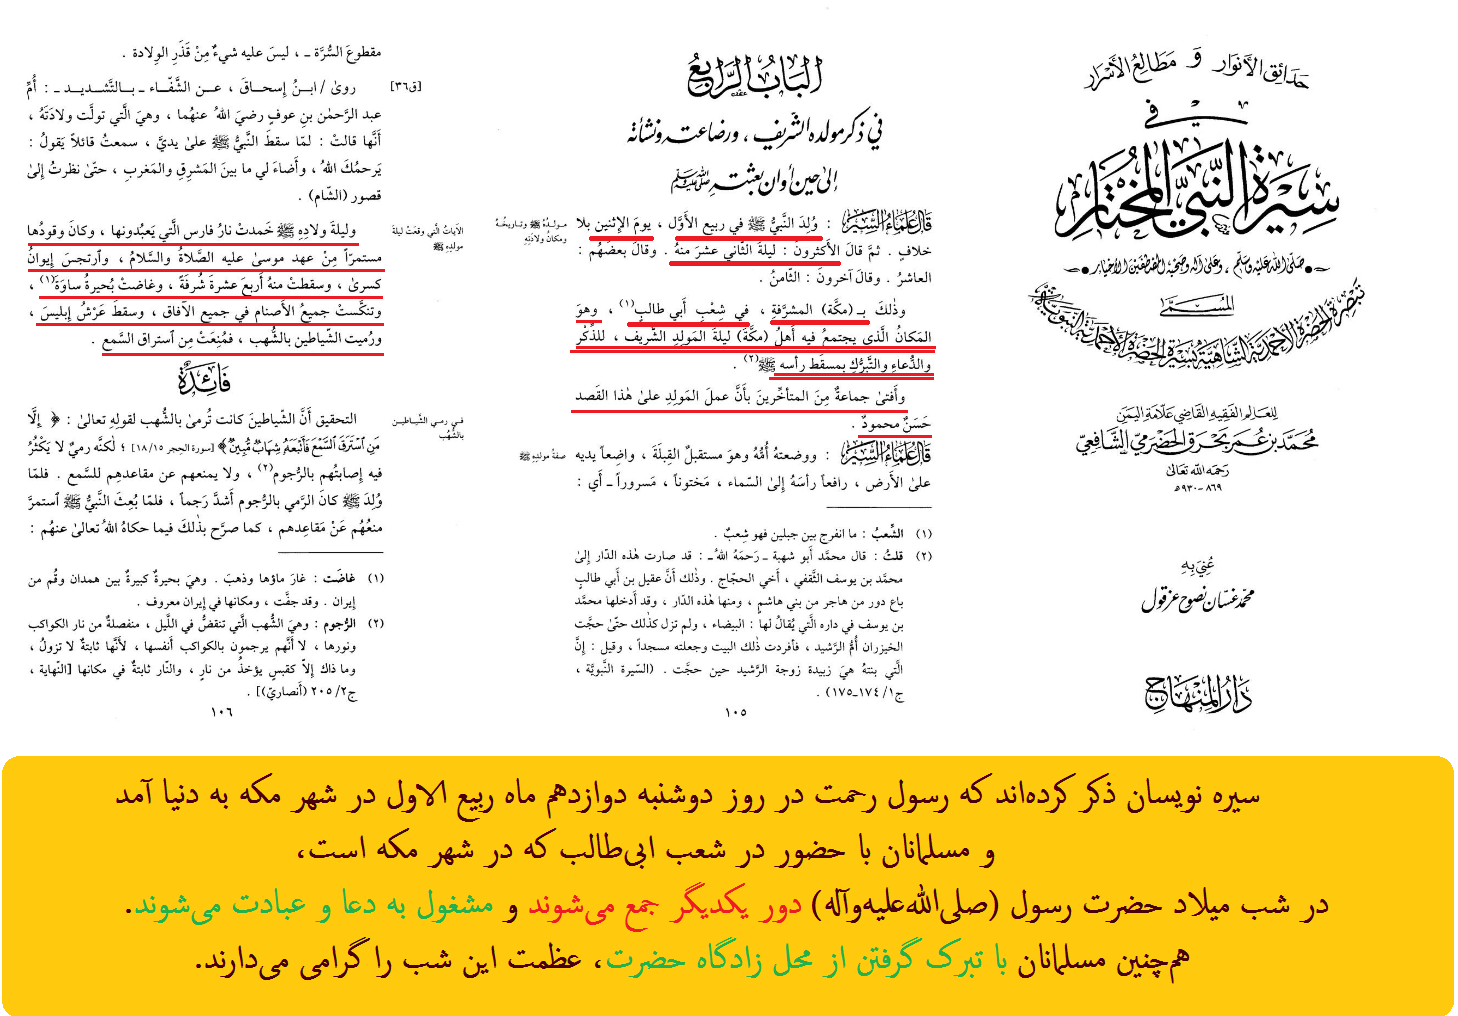 حدائق الأنوار و مطالع الأسرار
في
سيرة النبي المختار
صلى الله عليه وسلم ، وعلى آله وصحبه المصطفين الأخيار
المسمى
تبصرة الحضرة الأحمدية الشاهية بسيرة الحضرة الأحمدية النبوية
للعالم الفقيه القاضي علامة اليمن
محمد بن عمر بحرق الحضرمي الشافعي
رحمه الله تعالى
٨٦٩ - ٩٣٠ هـ
عني به
محمد غسان نصوح عزقول
دار المنهاج
الباب الرابع
في ذكر مولده الشريف ، ورضاعته ونشأته
إلى حين أوان بعثته ﷺ
مولدُهُ ﷺ وتاريخُهُ
ومكانُ ولادَتِه
قال علماء السير : وُلِدَ النَّبيُّ ﷺ في ربيع الأوَّل ، يومَ الإثنين بلا
خلافٍ . ثمَّ قالَ الأكثرون : ليلةَ الثَّاني عشرَ منهُ . وقال بعضُهُم :
العاشرُ . وقال آخرونَ : الثَّامنُ .
وذلكَ بـ (مكَّة) المشرَّفةِ ، في شِعْبِ أَبي طالبٍ(١) ، وهوَ
المكانُ الَّذي يجتمعُ فيه أهلُ (مكَّةَ) ليلةَ المَولدِ الشَّريف ، للذِّكْرِ
والدُّعاءِ والتَّبرُّكِ بمسقَطِ رأسه ﷺ(٢) .
وأَفتىٰ جماعةٌ مِنَ المتأخِّرينَ بأنَّ عملَ المَولِدِ علىٰ هٰذا القَصد
حَسَنٌ محمودٌ .
صفةُ مولدِهِ ﷺ
قال علماء السير : ووضعتهُ أُمُّهُ وهوَ مستقبلُ القِبلَةَ ، واضِعاً يديه
علىٰ الأَرض ، رافعاً رأسَهُ إلىٰ السَّماء ، مَختوناً ، مَسروراً ـ أَي :
(١) الشِّعبُ : ما انفرج بين جبلين فهو شِعبٌ .
(٢) قلتُ : قال محمَّد أَبو شهبة ـ رَحمَهُ اللهُ ـ : قد صارت هٰذه الدّار إلىٰ
محمَّد بن يوسف الثَّقفي ، أَخي الحجّاج . وذٰلك أَنَّ عقيل بن أَبي طالب
باع دور من هاجر من بني هاشم ، ومنها هٰذه الدّار ، وقد أَدخلها محمَّد
بن يوسف في داره الَّتي يُقالُ لها : البيضاء ، ولم تزل كذٰلك حتّىٰ حجَّت
الخيزران أُمُّ الرَّشيد ، فأَفردت ذٰلك البيت وجعلته مسجداً ، وقيل : إنَّ
الَّتي بنتهُ هيَ زبيدة زوجة الرَّشيد حين حجَّت . (السّيرة النَّبويَّة ،
ج١/ ١٧٤ـ١٧٥) .
١٠٥
مقطوعَ السُّرَّة ـ ، ليسَ عليه شيءٌ مِنْ قَذَرِ الوِلادة .
[ق٣٦]
روىٰ / ابنُ إسحاقَ ، عـن الشَّفّـاء ـ بـالتَّشـديـد ـ : أُمِّ
عبد الرَّحمٰن بن عوفٍ رضيَ اللهُ عنهُما ، وهيَ الَّتي تولَّت ولادَتَهُ ،
أنَّها قالتْ : لمّا سقطَ النَّبيُّ ﷺ علىٰ يديَّ ، سمعتُ قائلاً يَقولُ :
يَرحمُكَ اللهُ ، وأَضاءَ لي ما بينَ المَشرِقِ والمَغربِ ، حتّىٰ نظرتُ إلىٰ
قصور (الشّام) .
الآياتُ الَّتي وقعَتْ ليلةَ
مولدِهِ ﷺ
وليلةَ ولادِهِ ﷺ خَمدتْ نارُ فارس الَّتي يَعبُدونها ، وكانَ وقودُها
مستمرّاً مِنْ عهد موسىٰ عليه الصَّلاةُ والسَّلامُ ، وٱرتجسَ إيوانُ
كسرىٰ ، وسقطتْ منهُ أَربعَ عشرةَ شُرفَةً ، وغاضتْ بُحيرةُ ساوَةَ(١) ،
وتنكَّستْ جميعُ الأَصنام في جميع الآفاق ، وسقطَ عَرْشُ إبليسَ ،
ورُميت الشَّياطين بالشُّهب ، فمُنِعَتْ مِن ٱستراق السَّمع .
فائدة
في رمي الشَّياطين
بالشُّهُب
التحقيق أَنَّ الشّياطينَ كانت تُرمىٰ بالشُّهب لقولهِ تعالىٰ : ﴿ إِلَّا
مَنِ اسْتَرَقَ السَّمْعَ فَأَتْبَعَهُ شِهَابٌ مُبِينٌ ﴾ [سورة الحِجر ١٨/١٥] ؛ لٰكنَّه رميٌ لا يَكْثُرُ
فيه إصابتُهم بالرُّجوم(٢) ، ولا يمنعهم عن مقاعدهم للسَّمع . فلمّا
وُلِدَ ﷺ كانَ الرَّمي بالرُّجوم أشدَّ رَجماً ، فلمّا بُعِثَ النَّبيُّ ﷺ ٱستمرَّ
منعُهُم عَنْ مَقاعدهم ، كما صرَّح بذٰلكَ فيما حكاهُ اللهُ تعالىٰ عنهُم :
(١) غاضَت : غارَ ماؤها وذهبَ . وهيَ بحيرةٌ كبيرةٌ بين همدان وقُم من
إيران . وقد جفَّت ، ومكانها في إيران معروف .
(٢) الرُّجوم : وهيَ الشُّهب الَّتي تنقضُّ في اللَّيل ، منفصلةٌ من نار الكواكب
ونورها ، لا أَنَّهم يرجمون بالكواكب أَنفسها ، لأَنَّها ثابتةٌ لا تزولُ ،
وما ذاك إلاّ كقبسٍ يؤخذُ من نارٍ ، والنّار ثابتةٌ في مكانها [النّهاية ،
ج٢/ ٢٠٥ (أَنصاريّ)] .
١٠٦
سیره نویسان ذکر کرده‌اند که رسول رحمت در روز دوشنبه دوازدهم ماه ربیع الاول در شهر مکه به دنیا آمد
و مسلمانان با حضور در شعب ابی‌طالب که در شهر مکه است،
در شب میلاد حضرت رسول (صلی‌الله‌علیه‌وآله) دور یکدیگر جمع می‌شوند و مشغول به دعا و عبادت می‌شوند.
هم‌چنین مسلمانان با تبرک گرفتن از محل زادگاه حضرت، عظمت این شب را گرامی می‌دارند.